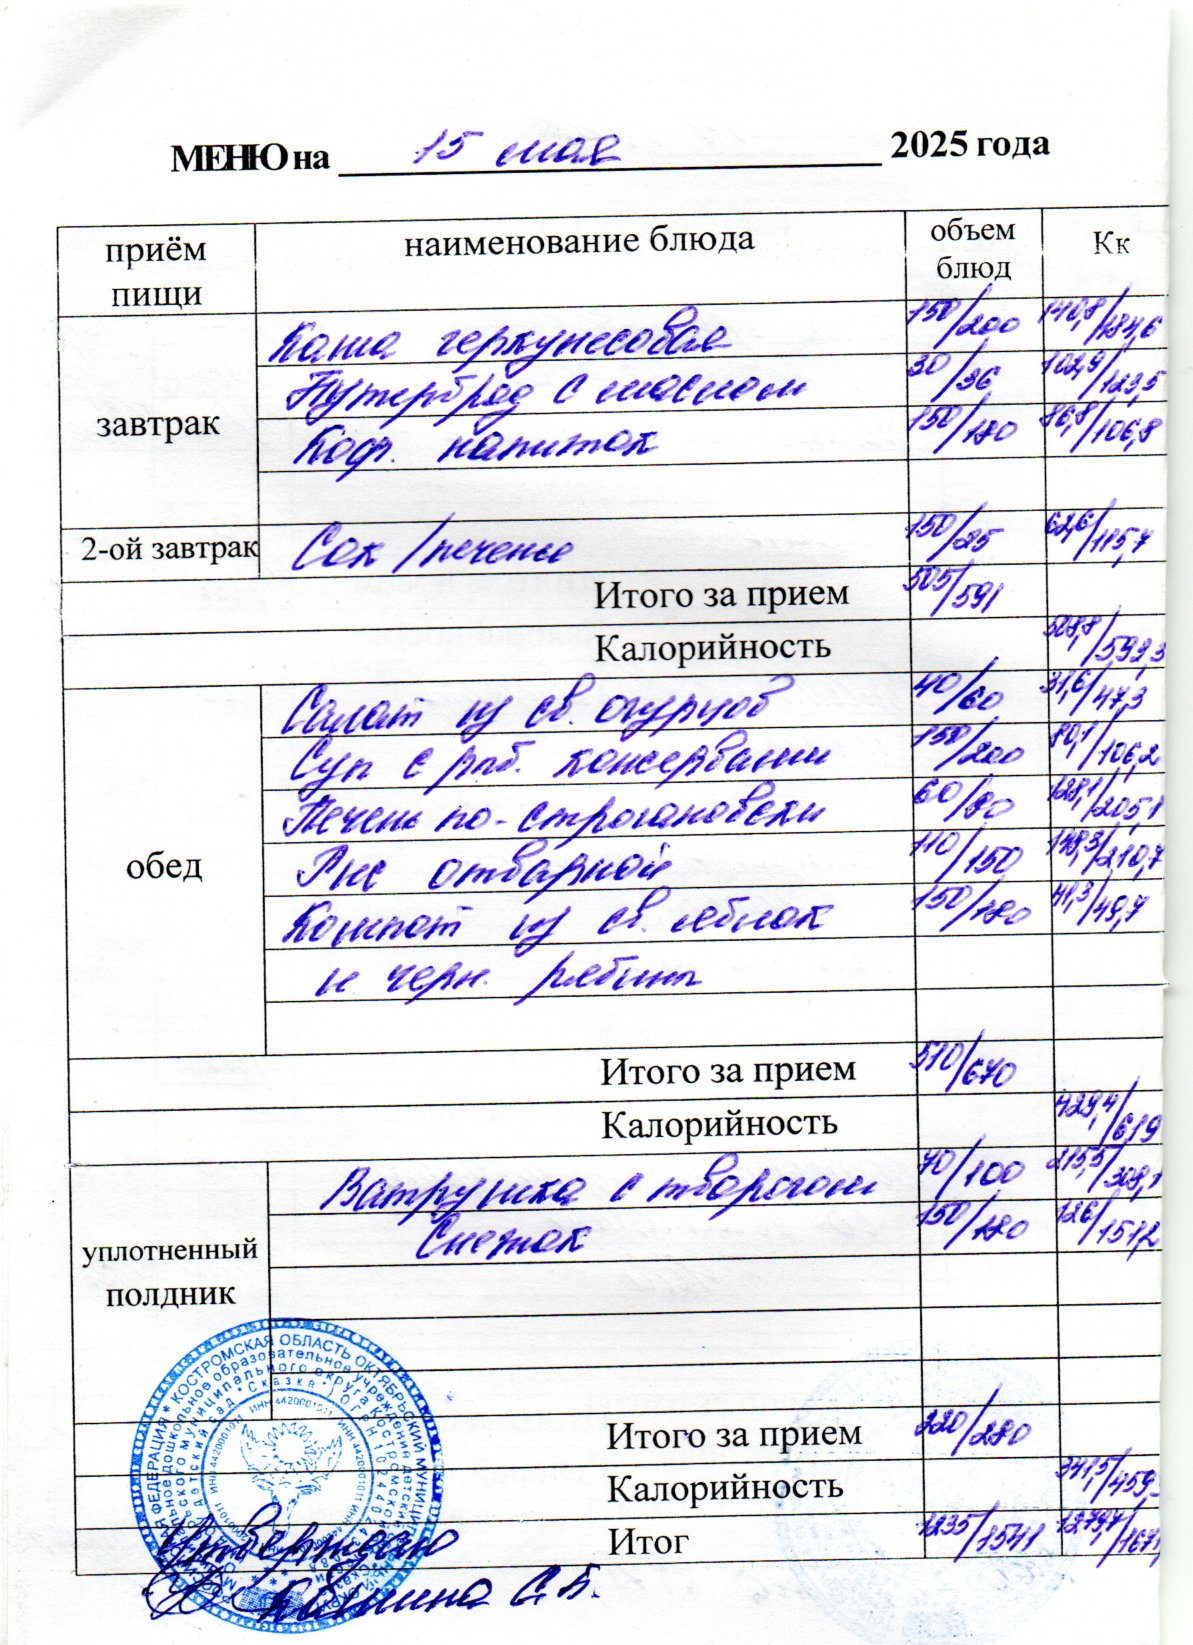 МЕНЮ на 15 мая 2025 года
приём пищи наименование блюда объем блюд Кк
завтрак
Каша геркулесовая 150/200 140,8/184,6
Бутерброд с маслом 30/36 102,9/123,5
Коф. напиток 150/180 86,8/106,8
2-ой завтрак Сок /печенье 150/25 62,6/115,7
Итого за прием 505/591
Калорийность 508,8/592,3
обед
Салат из св. огурцов 40/60 31,6/47,3
Суп с рыб. консервами 150/200 80,1/106,2
Печень по-строгановски 60/80 128,1/205,1
Рис отварной 110/150 148,3/210,7
Компот из св. яблок 150/180 41,3/49,7
и черн. рябины
Итого за прием 510/670
Калорийность 429,4/619
уплотненный полдник
Ватрушка с творогом 70/100 215,5/308,1
Снежок 150/180 126/151,2
Итого за прием 220/280
Калорийность 341,5/459
Итог 1235/1541
Утверждаю
Калинина С.Б.